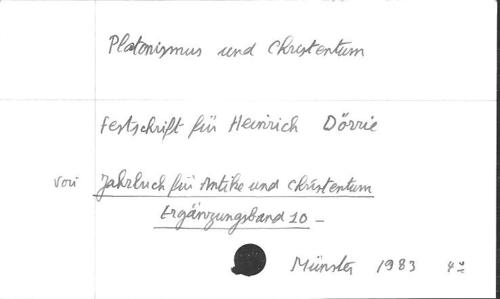 Platonismus und Christentum
Festschrift für Heinrich Dörrie
voir Jahrbuch für Antike und Christentum
Ergänzungsband 10 -
Münster 1983 4º